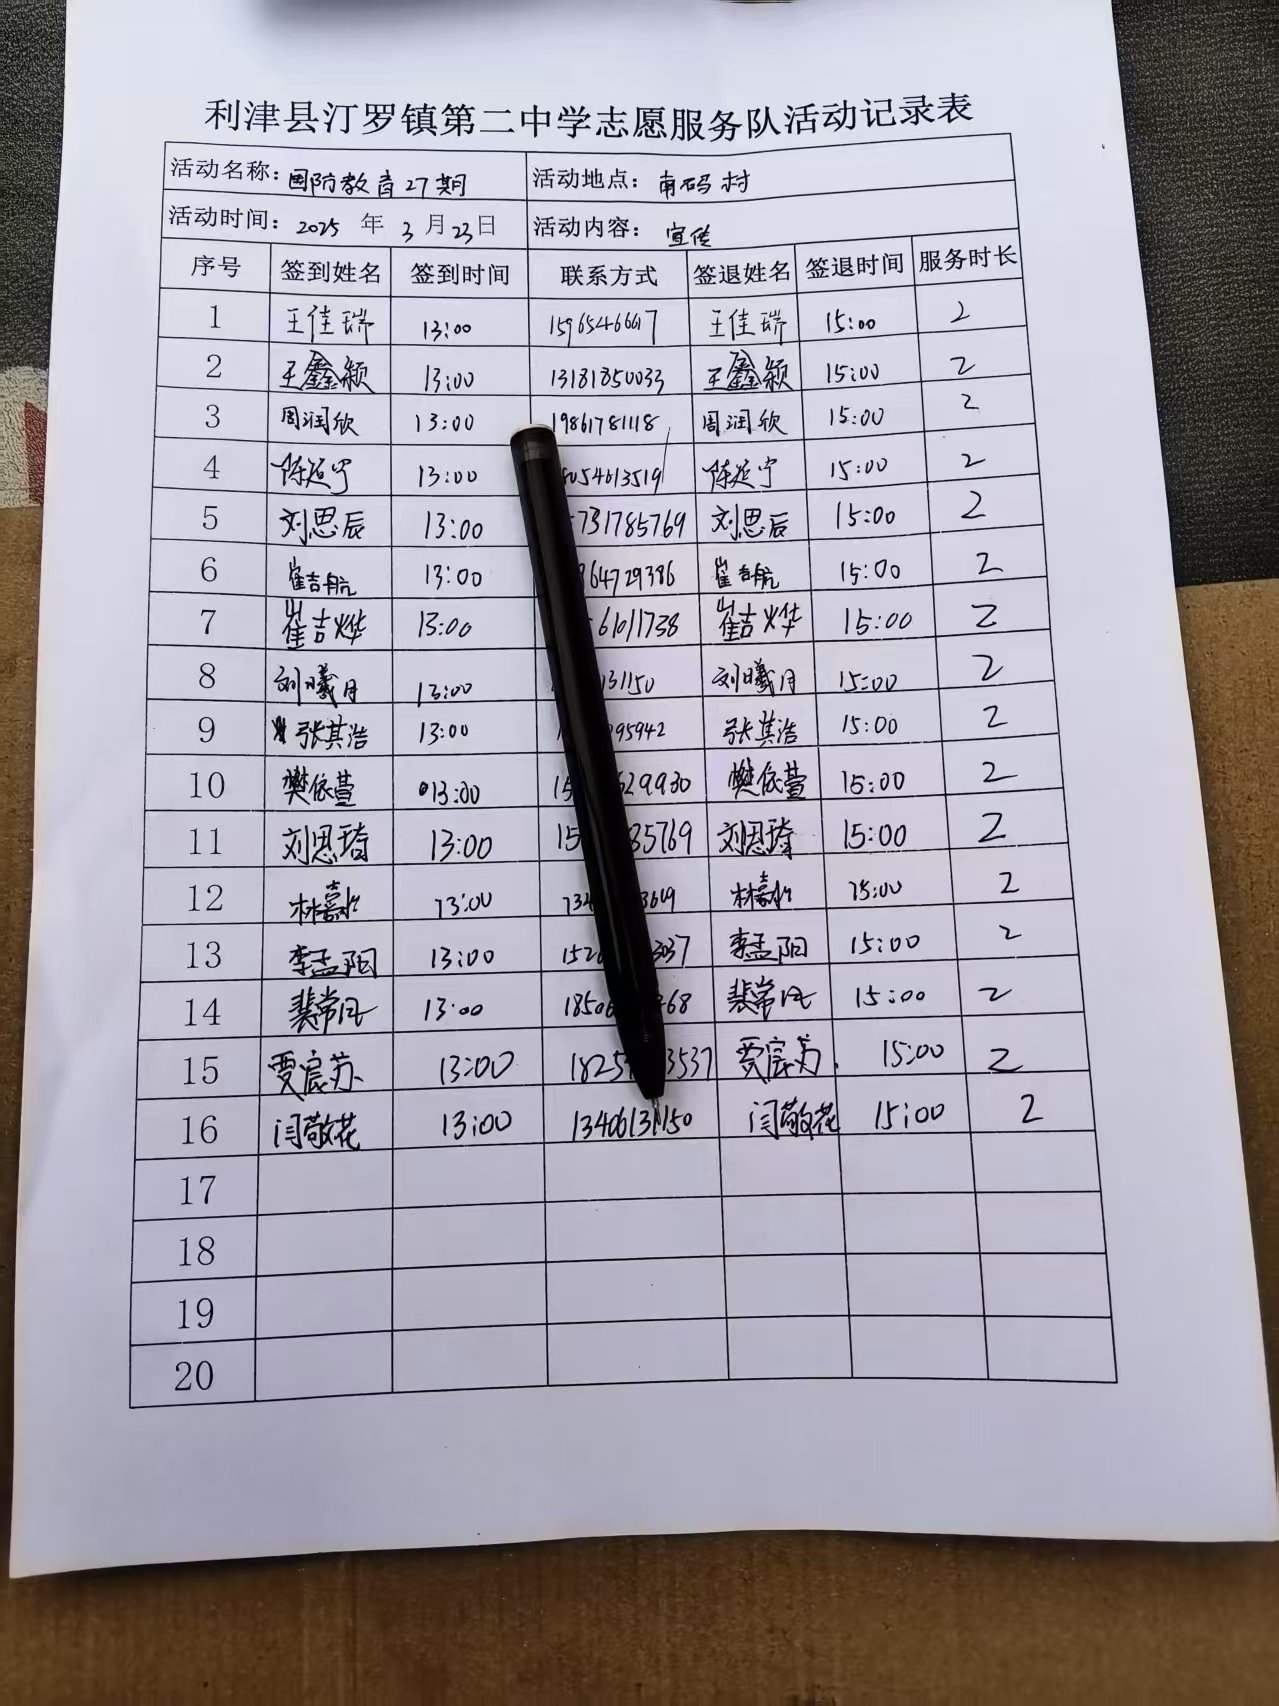 利津县汀罗镇第二中学志愿服务队活动记录表
活动名称：国防教育27期 活动地点：南码村
活动时间：2025 年 3 月 23 日 活动内容：宣传
序号 签到姓名 签到时间 联系方式 签退姓名 签退时间 服务时长
1 王佳瑞 13:00 王佳瑞 15:00 2
2 王鑫颖 13:00 13181850033 王鑫颖 15:00 2
3 周润欣 13:00 19861781118 周润欣 15:00 2
4 陈延宁 13:00 8054613519 陈延宁 15:00 2
5 刘思辰 13:00 731785769 刘思辰 15:00 2
6 崔吉航 13:00 64729386 崔吉航 15:00 2
7 崔吉烨 13:00 61011738 崔吉烨 15:00 2
8 刘曦月 13:00 131150 刘曦月 15:00 2
9 张其浩 13:00 95942 张其浩 15:00 2
10 樊依萱 13:00 629930 樊依萱 15:00 2
11 刘思琦 13:00 35769 刘思琦 15:00 2
12 13:00 15:00 2
13 李孟阳 13:00 152 3037 李孟阳 15:00 2
14 裴常 13:00 1850 68 裴常 15:00 2
15 贾宸苏 13:00 1825 3537 贾宸苏 15:00 2
16 闫敬花 13:00 13406131150 闫敬花 15:00 2
17
18
19
20